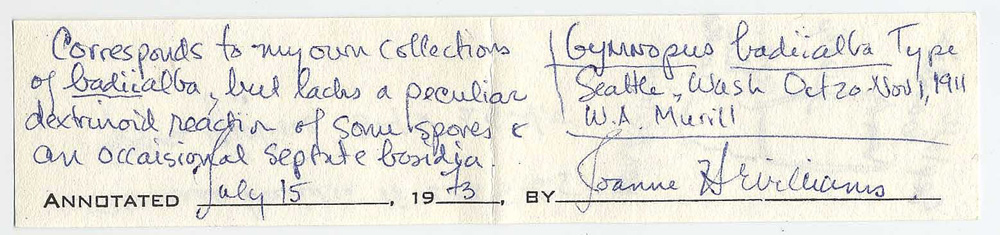 Corresponds to my own collections
of badiialba, but lacks a peculiar
dextrinoid reaction of some spores &
an occaisional septate basidia.
Gymnopus badiialba Type
Seattle, Wash Oct 20-Nov 1, 1911
W.A. Murill
ANNOTATED July 15, 1973, BY Joanne H Williams